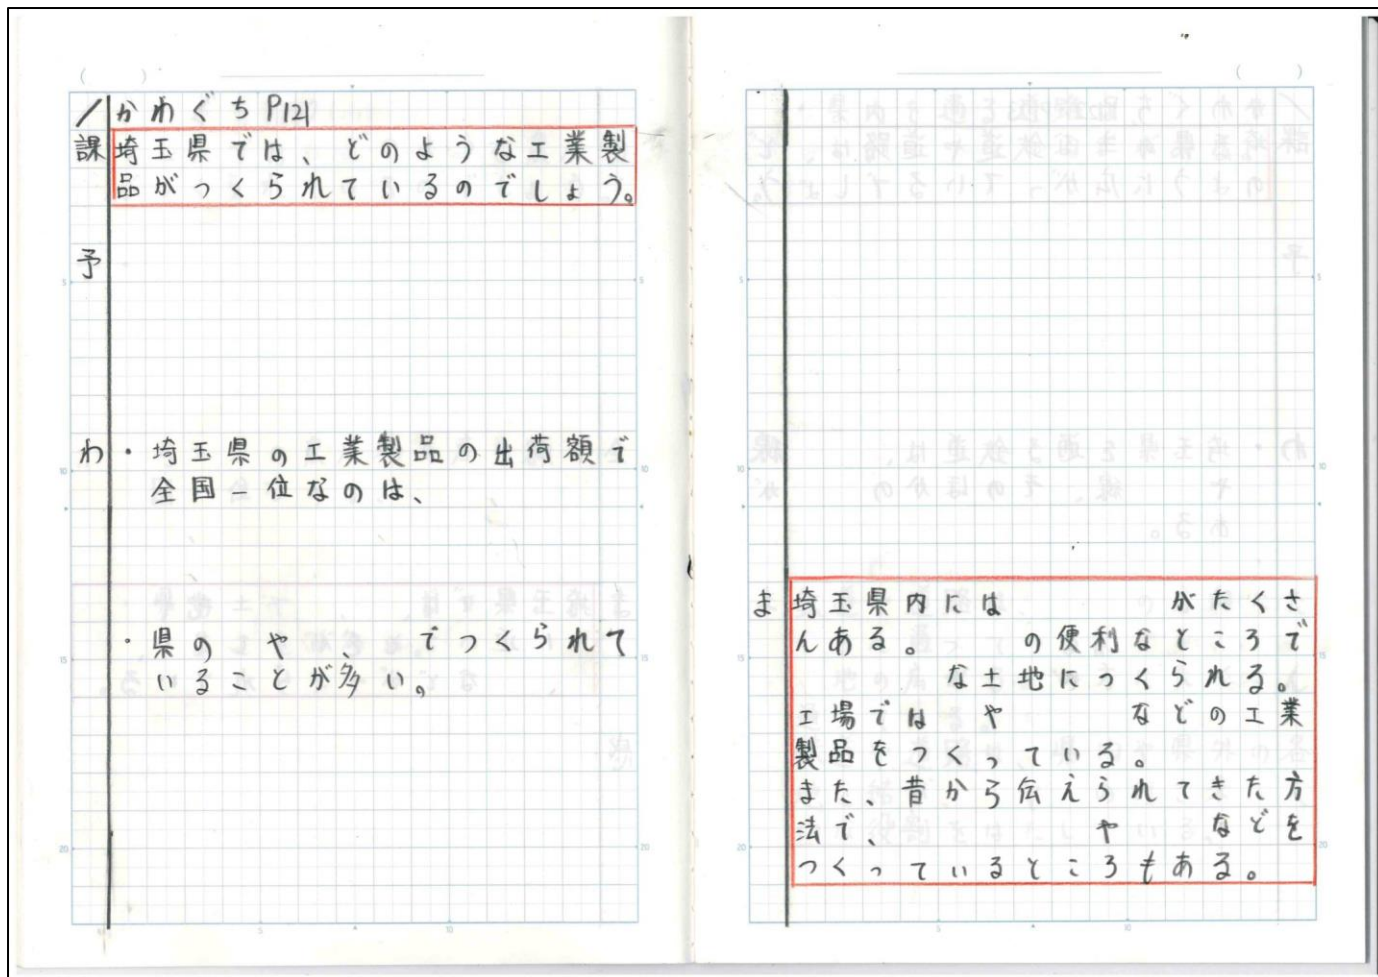 ／ かわぐちP121
課 埼玉県では、どのような工業製
品がつくられているのでしょう。
予
わ ・埼玉県の工業製品の出荷額で
全国一位なのは、
・県の や 、 でつくられて
いることが多い。
ま 埼玉県内には がたくさ
んある。 の便利なところで
な土地につくられる。
工場では や などの工業
製品をつくっている。
また、昔から伝えられてきた方
法で、 や などを
つくっているところもある。